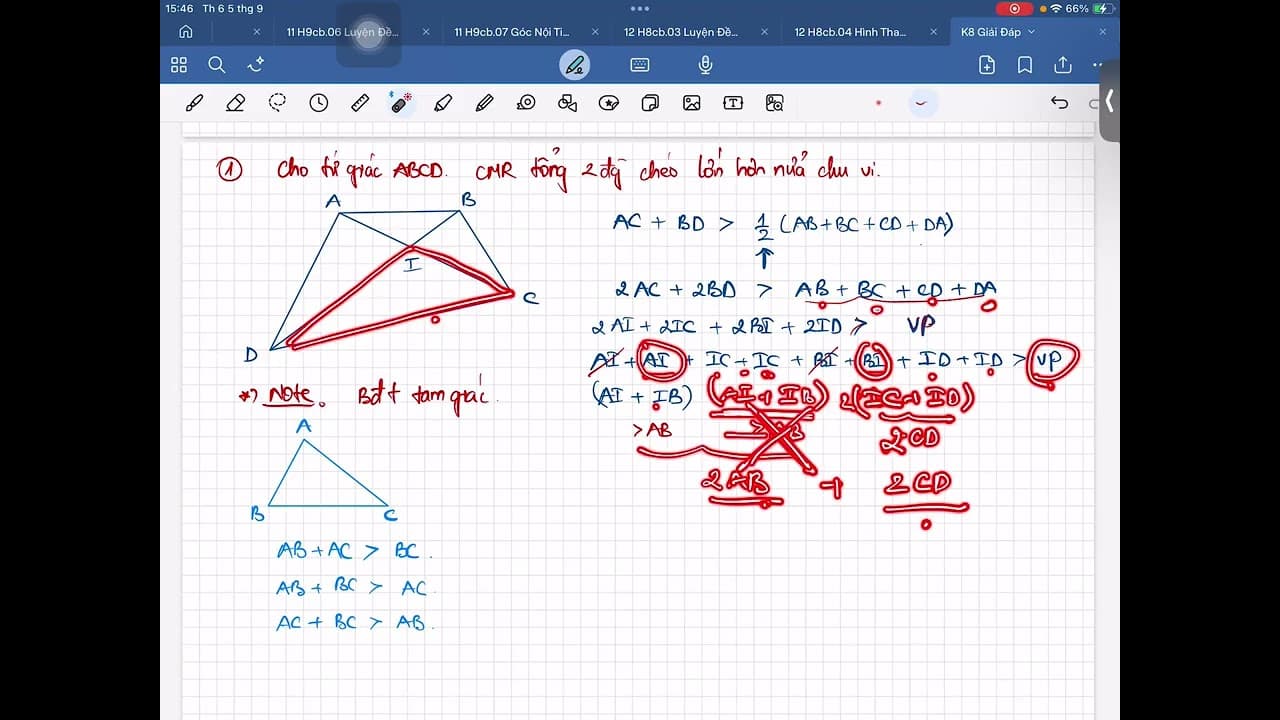 15:46 Th 6 5 thg 9
66%
11 H9cb.06 Luyện Đề...
11 H9cb.07 Góc Nội Ti...
12 H8cb.03 Luyện Đề...
12 H8cb.04 Hình Tha...
K8 Giải Đáp
① Cho tứ giác ABCD. CMR tổng 2 đg chéo lớn hơn nửa chu vi.
A B
I
C
D
AC + BD > 1/2 (AB+BC+CD+DA)
2AC + 2BD > AB + BC + CD + DA
2AI + 2IC + 2BI + 2ID > VP
AI + AI + IC + IC + BI + BI + ID + ID > VP
(AI + IB) (AI + IB) 2(IC + ID)
>AB
2CD
2AB + 2CD
*) Note. Bđt tam giác.
A
B C
AB + AC > BC.
AB + BC > AC.
AC + BC > AB.